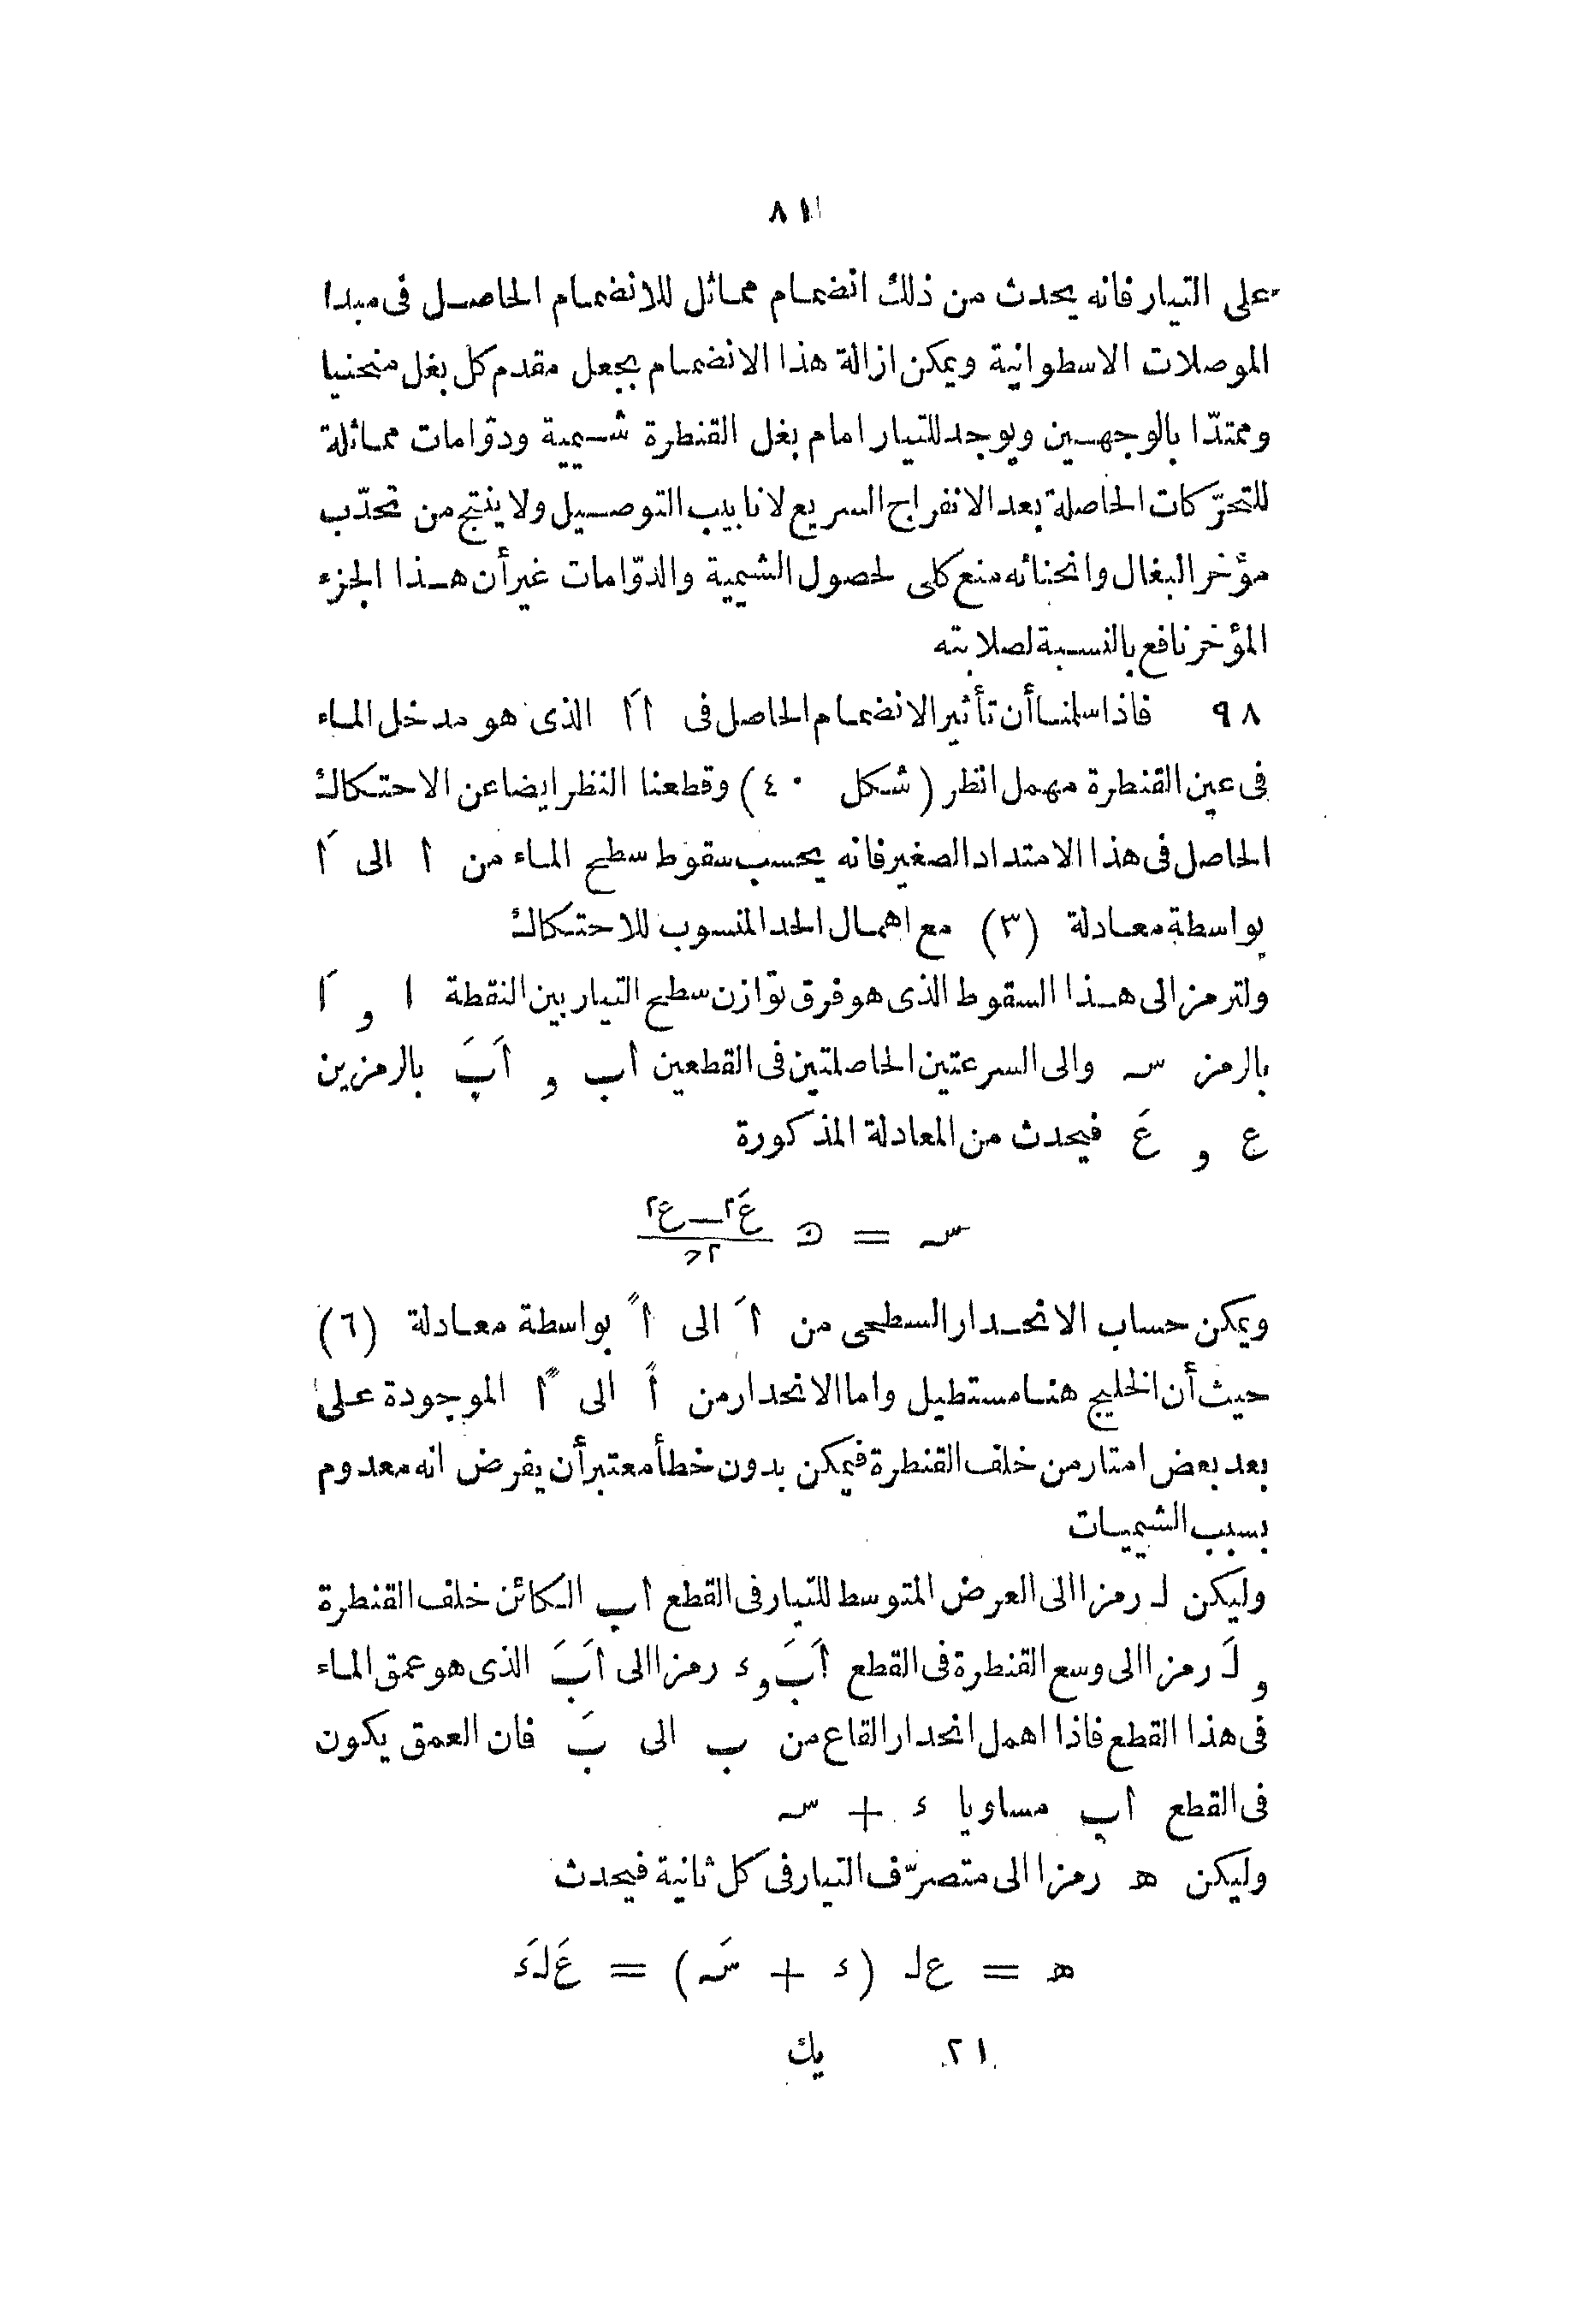 ٨١
على التيار فانه يحدث من ذلك انضمام مماثل للانضمام الحاصل فى مبدا
الموصلات الاسطوانية ويمكن ازالة هذا الانضمام بجعل مقدم كل بغل منحنيا
وممتدّا بالوجهين ويوجد للتيار امام بغل القنطرة شيمية ودوّامات مماثلة
للتحرّكات الحاصلة بعد الانفراج السريع لانابيب التوصيل ولا ينتج من تحدّب
مؤخر البغال وانحنائه منع كلى لحصول الشيمية والدوّامات غير أن هذا الجزء
المؤخر نافع بالنسبة لصلابته
٩٨ فاذا سلمنا أن تأثير الانضمام الحاصل فى اأَ الذى هو مدخل الماء
فى عين القنطرة مهمل انظر (شكل ٤٠) وقطعنا النظر ايضا عن الاحتكاك
الحاصل فى هذا الامتداد الصغير فانه يحسب سقوط سطح الماء من ا الى اَ
بواسطة معادلة (٣) مع اهمال الحد المنسوب للاحتكاك
ولترمز الى هذا السقوط الذى هو فرق توازن سطح التيار بين النقطة ا و اَ
بالرمز سـ والى السرعتين الحاصلتين فى القطعين اب و اَبَ بالرمزين
ع و عَ فيحدث من المعادلة المذكورة
سـ = ﮅ (عَ٢ ــ ع٢) / ٢ح
ويمكن حساب الانحدار السطحى من اَ الى اً بواسطة معادلة (٦)
حيث أن الخليج هنا مستطيل واما الانحدار من اً الى اًَ الموجودة على
بعد بعض امتار من خلف القنطرة فيمكن بدون خطأ معتبر أن يفرض انه معدوم
بسبب الشيميات
وليكن لـ رمزا الى العرض المتوسط للتيار فى القطع اب الكائن خلف القنطرة
و لَـ رمزا الى وسع القنطرة فى القطع اَبَ و ء رمزا الى اَبَ الذى هو عمق الماء
فى هذا القطع فاذا اهمل انحدار القاع من ب الى بَ فان العمق يكون
فى القطع اب مساويا ء + سـ
وليكن هـ رمزا الى متصرّف التيار فى كل ثانية فيحدث
هـ = ع لـ (ء + سَـ) = عَ لَـ ء
٢١ يك